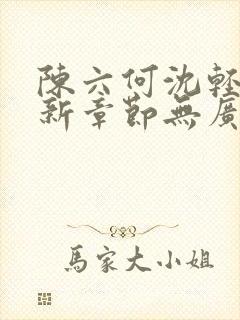 陳六何沈輕
新章節無廣
馬家大小姐